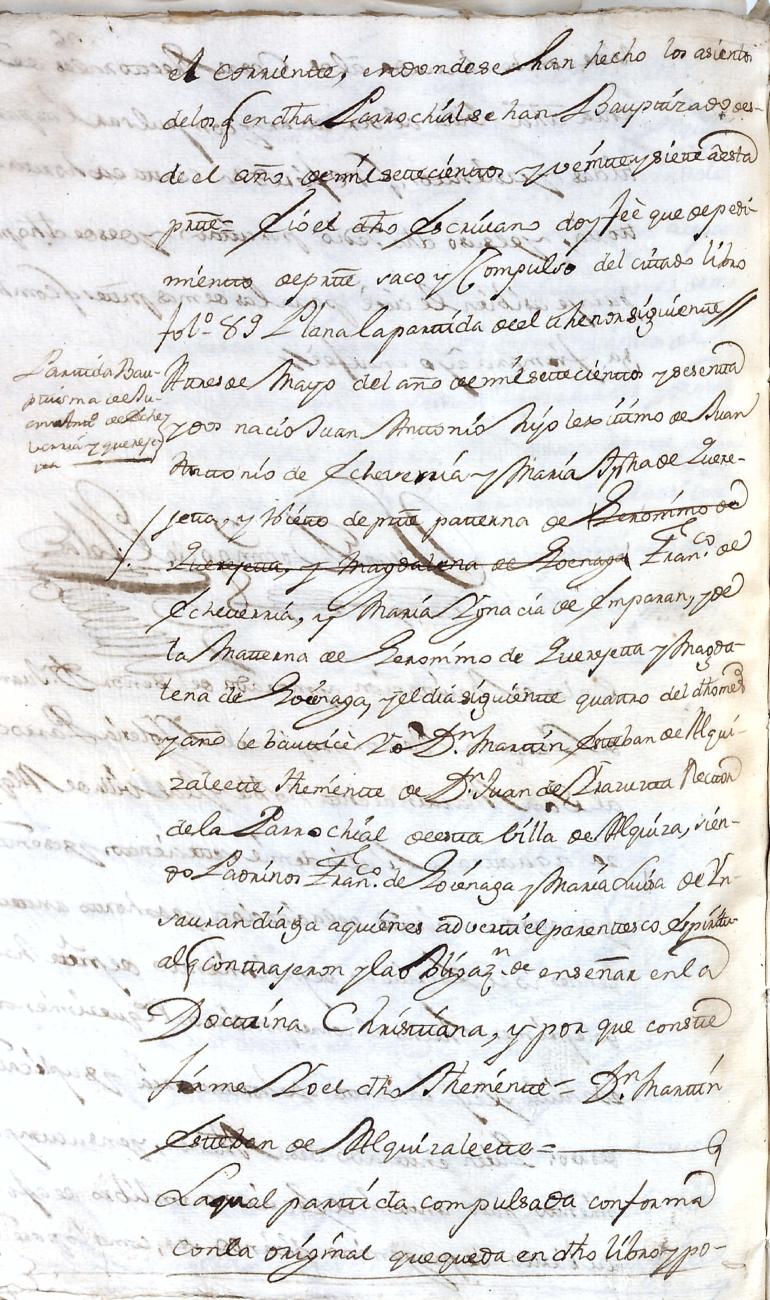 el corriente, en donde se han hecho los asientos
de los q en dha Parrochial se han Bauptizado des-
de el año de mil setecientos y veinte y siete a esta
prtte= E io el dho Escrivano doy feè que de pedi-
miento de prtte, saco y Compulso del citado libro
fol.º 89 Plana la partida de el thenor siguiente //
Partida Bau-
ptisma de Ju-
an Antt.º de Eche
verria y querej-
eta
A tres de Mayo del año de mil setecientos y sesenta
y dos nacio Juan Antonio hijo lexitimo de Juan
Antonio de Echeverria y Maria Jpha de Quere-
jetta, y Nieto de prtte patterna de Geronimo de
Querejetta, y Magdalena de Goenaga Fran.co de
Echeverria, y Maria Ygnacia de Emparan, y de
la Matterna de Geronimo de Querejetta y Magda-
lena de Goenaga, y el dia siguiente quattro del dho mes
y año le bauticè Yo D.n Martin Esteban de Alqui-
zaleette Themiente de D.n Juan de Yrazuzta Rector
de la Parrochial de esta Villa de Alquiza, sien-
do Padrinos Fran.co de Goenaga y Maria Luisa de Yn-
saurandiaga a quienes adverti el parentesco Espiritu-
al q contrajeron y la obligaz.n de enseñar en la
Doctrina Christiana, y por que conste
firme Yo el dho Themiente = D.n Martin
Esteban de Alquizaleette =
La qual partida compulsada conforma
con la original que queda en dho libro y po-